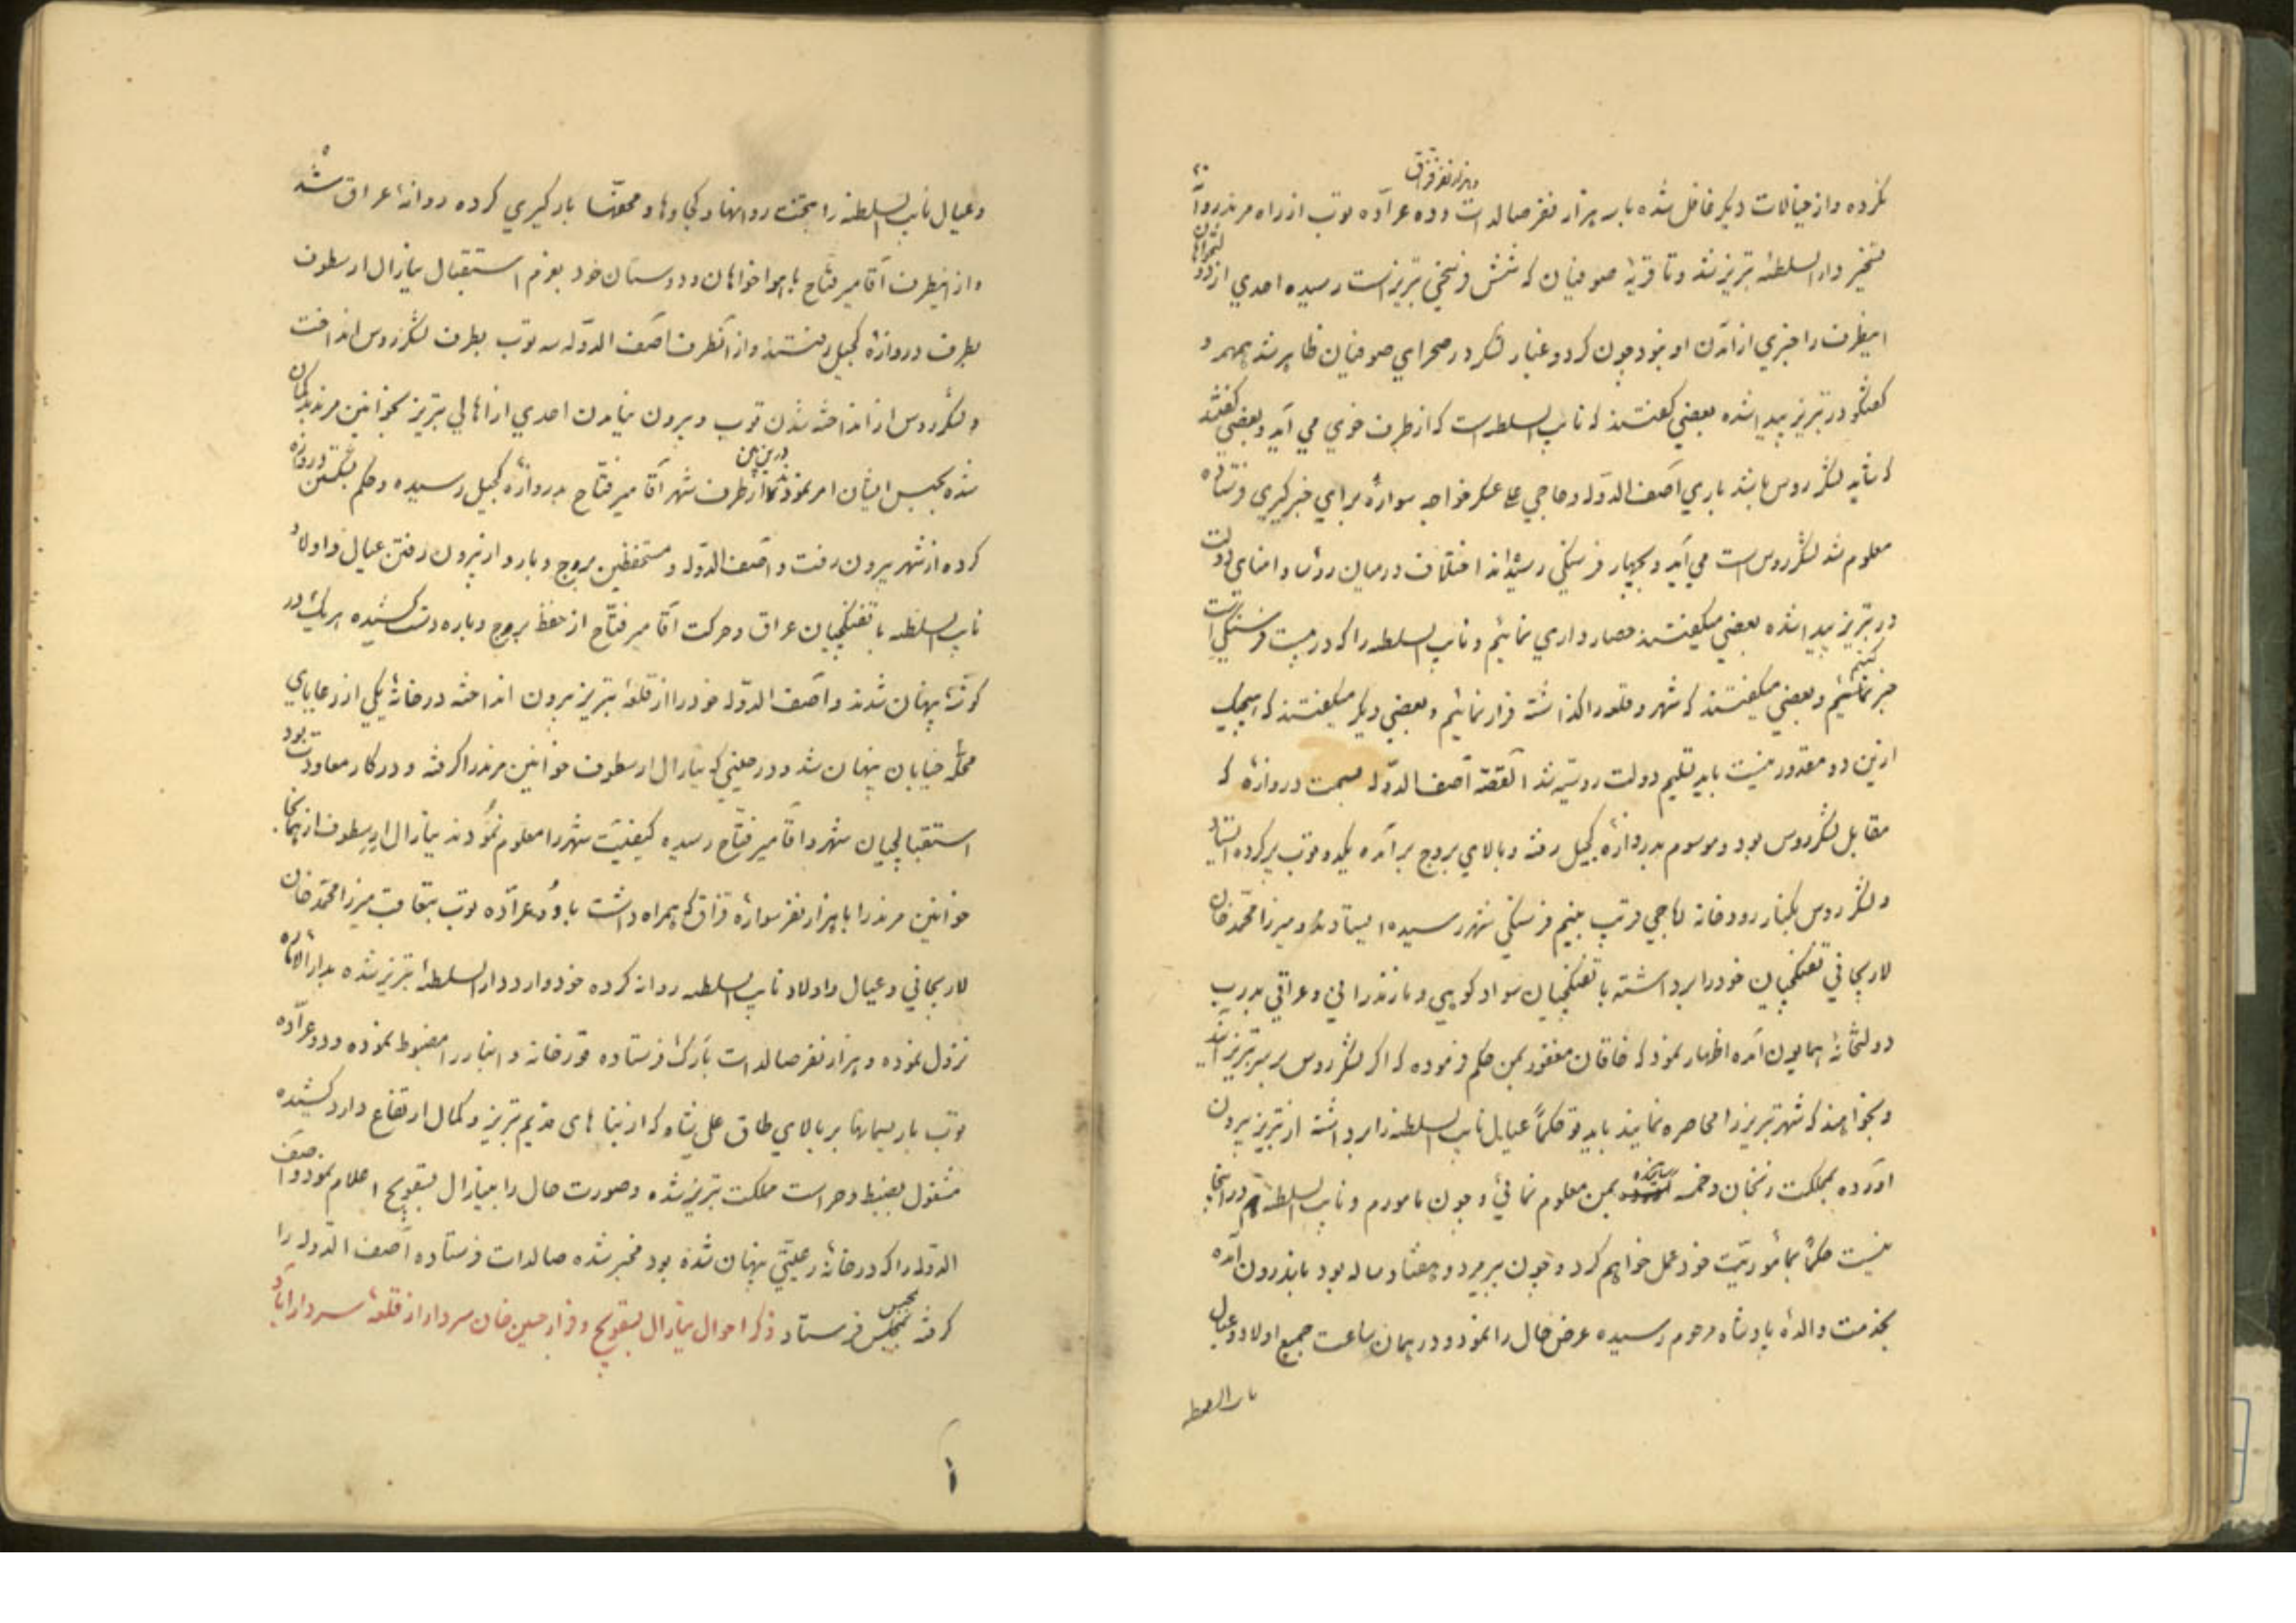 وهزار نفر قزاق
نکرده و از خیالات دیگر غافل شده با سه هزار نفر صالدات و ده عرآده توپ از راه مرند روانهٔ
تسخیر دار السلطنهٔ تبریز شد و تا قریهٔ صوفیان که شش فرسخی تبریز است رسیده احدی از
اینطرف را خبری از آمدن او نبود چون گرد و غبار لشکر در صحرای صوفیان ظاهر شد همهمه و
گفتگو در تبریز پیدا شده بعضی گفتند که نایب السلطنه است که از طرف خوی می آید و بعضی گفتند
که شاید لشکر روس باشد باری آصف الدوله و حاجی علی عسکر خواجه سواره برای خبرگیری فرستاده
معلوم شد لشکر روس است می آید و بچهار فرسنگی رسیده‌اند اختلاف در میان رؤسا و امنای دولت
در تبریز پیدا شده بعضی میگفتند حصار داری نمائیم و نایب السلطنه را که در بیست فرسنگی است
خبر کنیم و بعضی میگفتند که شهر و قلعه را گذاشته فرار نمائیم و بعضی دیگر میگفتند که هیچیک
ازین دو مقدور نیست باید تسلیم دولت روسیه شد القصه آصف الدوله بسمت دروازهٔ که
مقابل لشکر روس بود و موسوم بدروازهٔ کجیل رفته و بالای بروج برآمده یکدو توپ پر کرده ایستاد
و لشکر روس بکنار رودخانه آجی قریب بنیم فرسنگی شهر رسیده ایستادند و میرزا محمد خان
لاریجانی تفنگچیان خود را برداشته با تفنگچیان سوادکوهی و مازندرانی و عراقی بدرب
دولتخانهٔ همایون آمده اظهار نمود که خاقان مغفور بمن حکم فرموده که اگر لشکر روس بر سر تبریز آید
و بخواهند که شهر تبریز را محاصره نمایند باید تو حکماً عیال نایب السلطنه را برداشته از تبریز بیرون
آورده بمملکت زنجان و خمسه رسانیده بمن معلوم نمائی و چون مامورم و نایب السلطنه هم در اینجا
نیست حکماً بمأموریت خود عمل خواهم کرد و چون پیرمرد و هفتاد ساله بود باندرون آمده
بخدمت والدهٔ پادشاه مرحوم رسیده عرض حال را نمود و در همان ساعت جمیع اولاد و عیال
نایب السلطنه
و عیال نایب السلطنه را بتخت روانها و کجاوها و محفّها بارگیری کرده روانهٔ عراق شد
و از اینطرف آقا میر فتّاح با هواخواهان و دوستان خود بعزم استقبال ینارال ارسطوف
بطرف دروازهٔ کجیل رفتند و از آنطرف آصف الدوله سه توپ بطرف لشکر روس انداخت
و لشکر روس از انداخته شدن توپ و بیرون نیامدن احدی از اهالی تبریز بخوانین مرند بدگمان
شده بحبس ایشان امر نمودند در این بین از طرف شهر آقا میر فتّاح بدروازهٔ کجیل رسیده و حکم بشکستن دروازه
کرده از شهر بیرون رفت و آصف الدوله و مستحفظین بروج و بارو از بیرون رفتن عیال و اولاد
نایب السلطنه با تفنگچیان عراق و حرکت آقا میر فتّاح از حفظ بروج و باره دست کشیده هر یک در
گوشهٔ پنهان شدند و آصف الدوله خود را از قلعهٔ تبریز بیرون انداخته در خانهٔ یکی از رعایای
محلّهٔ خیابان پنهان شد و در حینی که ینارال ارسطوف خوانین مرند را گرفته و در کار معاودت بود
استقبالچیان شهر و آقا میر فتّاح رسیده کیفیّت شهر را معلوم نمودند ینارال ارسطوف از همانجا
خوانین مرند را با هزار نفر سوارهٔ قزاق که همراه داشت با دو عرآده توپ بتعاقب میرزا محمد خان
لاریجانی و عیال و اولاد نایب السلطنه روانه کرده خود وارد دار السلطنهٔ تبریز شده بدار الاماره
نزول نموده و هزار نفر صالدات بارک فرستاده قورخانه و انبار را مضبوط نموده و دو عرآده
توپ با ریسمانها بر بالای طاق علی شاه که از بناهای قدیم تبریز و کمال ارتفاع دارد کشیده
مشغول بضبط و حراست مملکت تبریز شده و صورت حال را بینارال بسقویچ اعلام نمود و آصف
الدوله را که در خانهٔ رعیّتی پنهان شده بود مخبر شده صالدات فرستاده آصف الدوله را
گرفته بمجلس بحبس فرستاد ذکر احوال ینارال بسقویچ و فرار حسین خان سردار از قلعهٔ سردار آباد
۱